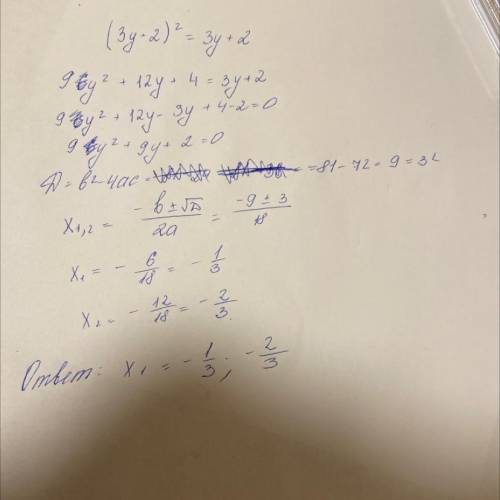 (3y+2)² = 3y+2
9y² + 12y + 4 = 3y+2
9y² + 12y - 3y + 4-2=0
9y² + 9y + 2=0
D = b²-4ac = =81-72=9=3²
x₁,₂ = -b±√D / 2a = -9±3 / 18
x₁ = - 6/18 = - 1/3
x₂ = - 12/18 = - 2/3
Ответ: x₁ = - 1/3 ; - 2/3